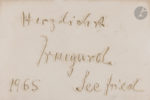 Herzlichst
Irmgard
1965 Seefried